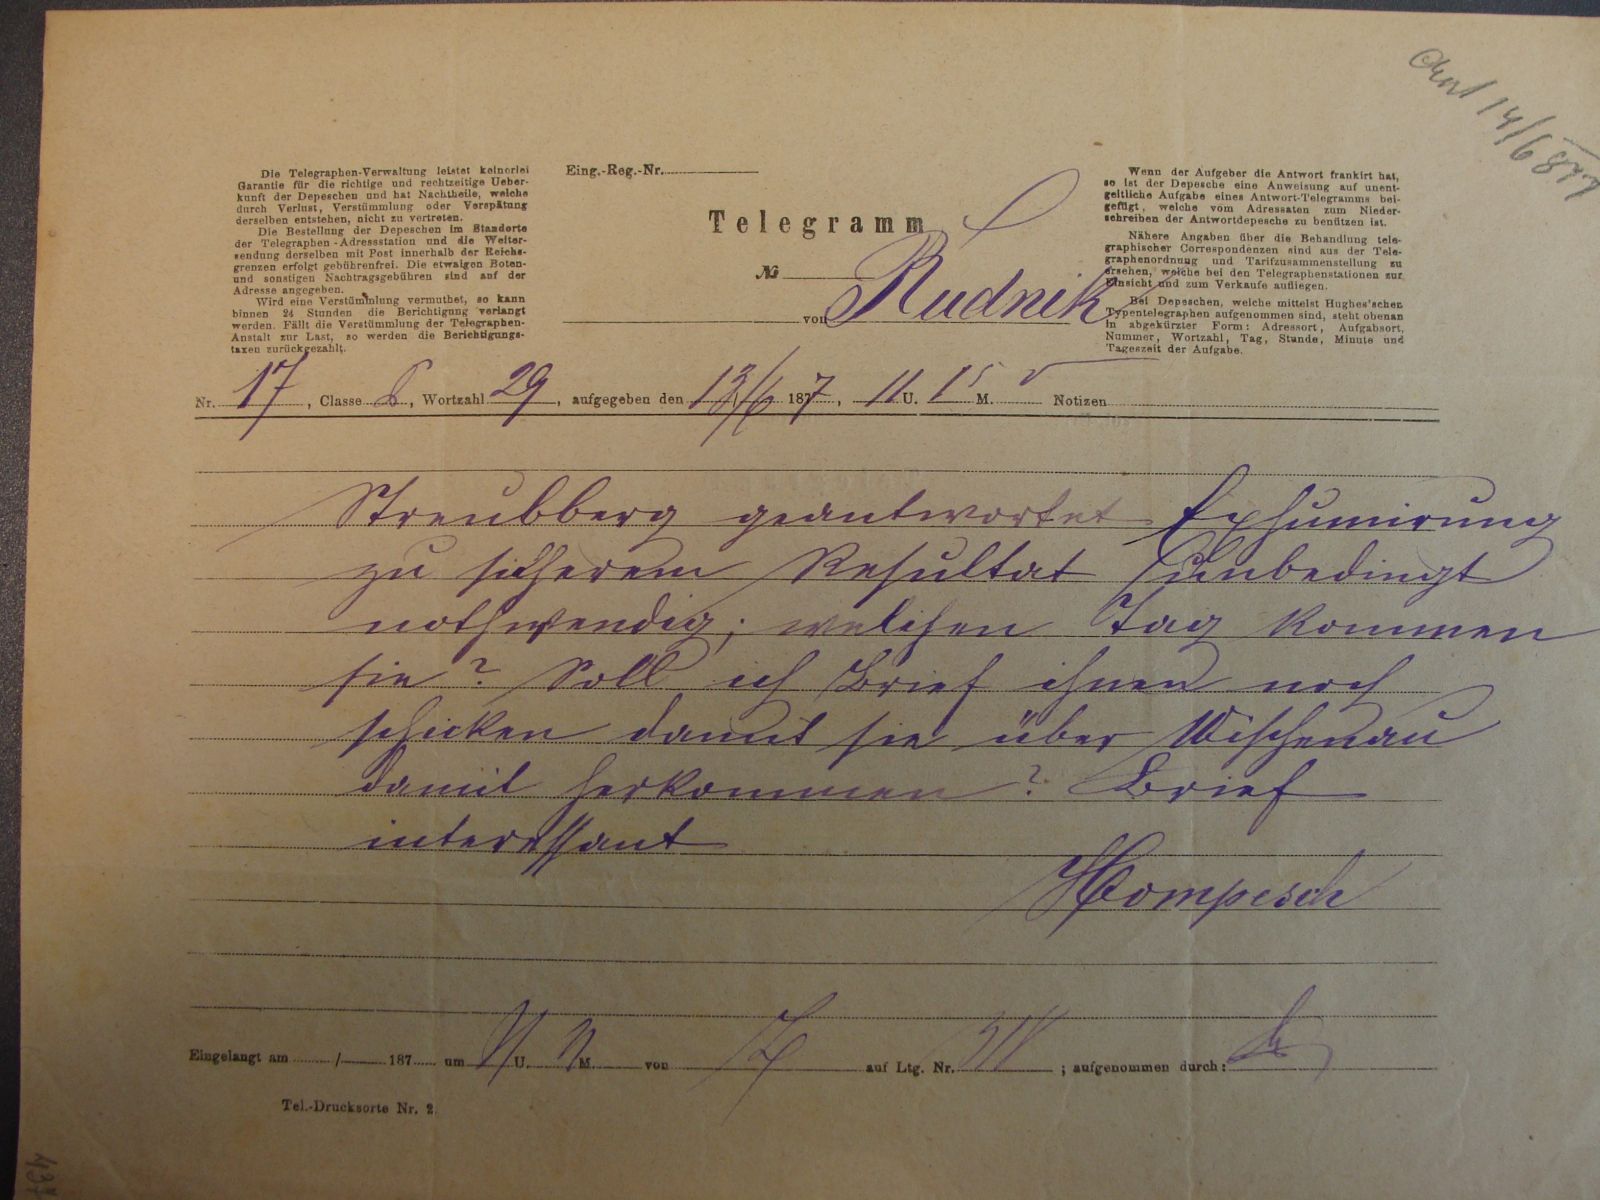 14/6 877
Die Telegraphen-Verwaltung leistet keinerlei
Garantie für die richtige und rechtzeitige Ueber-
kunft der Depeschen und hat Nachtheile, welche
durch Verlust, Verstümmlung oder Verspätung
derselben entstehen, nicht zu vertreten.
Die Bestellung der Depeschen im Standorte
der Telegraphen-Adressstation und die Weiter-
sendung derselben mit Post innerhalb der Reichs-
grenzen erfolgt gebührenfrei. Die etwaigen Boten-
und sonstigen Nachtragsgebühren sind auf der
Adresse angegeben.
Wird eine Verstümmlung vermuthet, so kann
binnen 24 Stunden die Berichtigung verlangt
werden. Fällt die Verstümmlung der Telegraphen-
Anstalt zur Last, so werden die Berichtigungs-
taxen zurückgezahlt.
Eing.-Reg.-Nr.
Telegramm
№
von Rudnik
Wenn der Aufgeber die Antwort frankirt hat,
so ist der Depesche eine Anweisung auf unent-
geltliche Aufgabe eines Antwort-Telegramms bei-
gefügt, welche vom Adressaten zum Nieder-
schreiben der Antwortdepesche zu benützen ist.
Nähere Angaben über die Behandlung tele-
graphischer Correspondenzen sind aus der Tele-
graphenordnung und Tarifzusammenstellung zu
ersehen, welche bei den Telegraphenstationen zur
Einsicht und zum Verkaufe aufliegen.
Bei Depeschen, welche mittelst Hughes'schen
Typentelegraphen aufgenommen sind, steht obenan
in abgekürzter Form: Adressort, Aufgabsort,
Nummer, Wortzahl, Tag, Stunde, Minute und
Tageszeit der Aufgabe.
Nr. 17, Classe, Wortzahl 29, aufgegeben den 13/6 1877, 11 U. 15 M. Notizen
Streubberg geantwortet Exhumirung
zu sicherem Resultat unbedingt
nothwendig; welchen Tag kommen
sie? Soll ich Brief ihnen noch
schicken damit sie über Wischenau
damit herkommen? Brief
interessant
Hompesch
Eingelangt am / 187 um U. M. von auf Ltg. Nr. ; aufgenommen durch:
Tel.-Drucksorte Nr. 2.